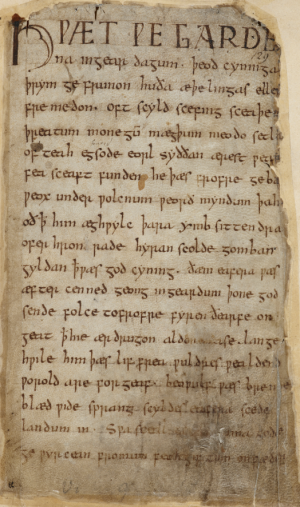 HǷÆT ǷE GARDE
na ingear dagum. þeod cyninga
þrym ge frunon huða æþelingas elle
fremedon. oft scyld scefing sceaþe
þreatum monegū mægþum meodo setla
of teah egsode eorl syððan ærest ƿearð
fea sceaft funden he þæs frofre geba
ƿeox under ƿolcnum ƿeorð myndum þah
oð ꝥ him æghƿylc þara ymb sittendra
ofer hron rade hyran scolde gomban
gyldan ꝥ ƿæs god cyning. ðæm eafera ƿæs
æfter cenned geong ingeardum þone god
sende folce tofrofre fyren ðearfe on
geat ꝥ hie ær drugon aldor ase. lange
hƿile him þæs lif frea ƿuldres ƿealdend
ƿorold are forgeaf. beoƿulf ƿæs breme
blæd ƿide sprang scyldes eafera scede
landum in. Sƿa sceal ma gode
ge ƿyrcean fromum feoh giftum on fæder